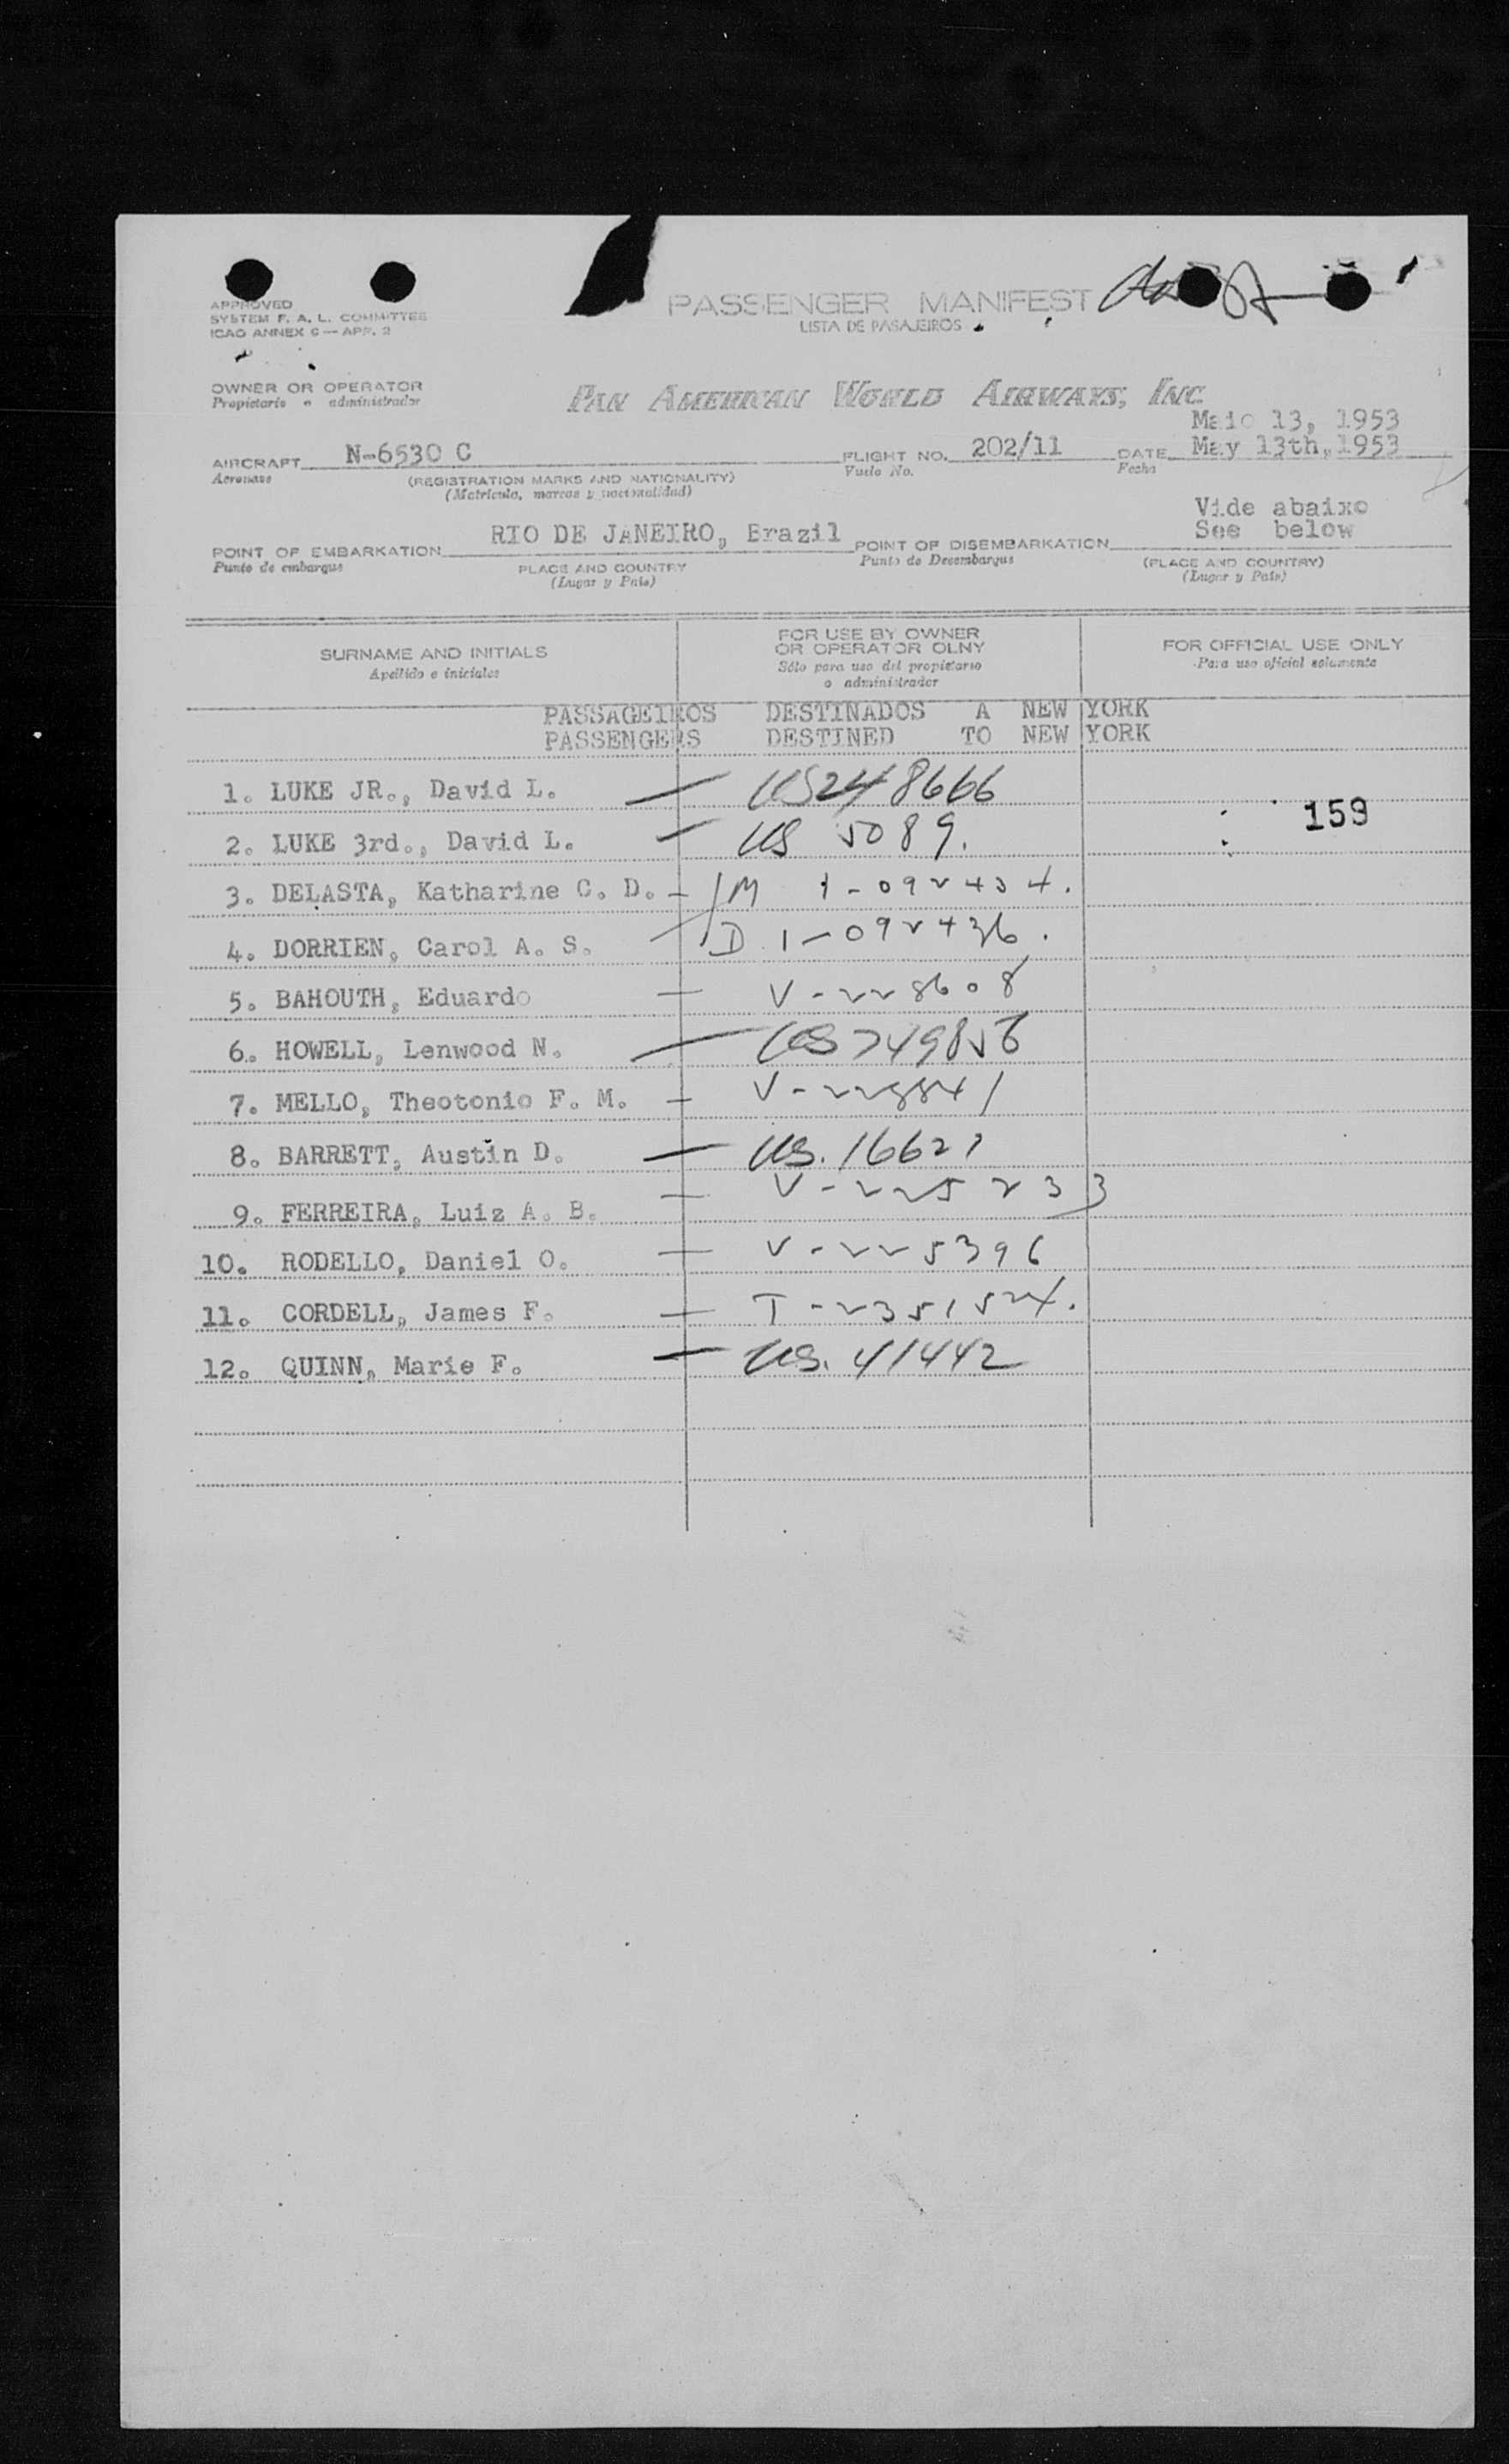 PASSENGER MANIFEST
LISTA DE PASAJEIROS
APPROVED
SYSTEM F. A. L. COMMITTEE
ICAO ANNEX 9 — APP. 2
OWNER OR OPERATOR
Propietario o administrador
PAN AMERICAN WORLD AIRWAYS, INC.
Maio 13, 1953
AIRCRAFT N-6530 C FLIGHT NO. 202/11 DATE May 13th, 1953
Aeronave (REGISTRATION MARKS AND NATIONALITY) Vuelo No. Fecha
(Matricula, marcas y nacionalidad)
Vide abaixo
See below
POINT OF EMBARKATION RIO DE JANEIRO, Brazil POINT OF DISEMBARKATION
Punto de embarque PLACE AND COUNTRY Punto de Desembarque (PLACE AND COUNTRY)
(Lugar y País) (Lugar y País)
SURNAME AND INITIALS
Apellido e iniciales
FOR USE BY OWNER
OR OPERATOR OLNY
Sólo para uso del propietario
o administrador
FOR OFFICIAL USE ONLY
Para uso oficial solamente
PASSAGEIROS DESTINADOS A NEW YORK
PASSENGERS DESTINED TO NEW YORK
1. LUKE JR., David L. — US248666
159
2. LUKE 3rd., David L. — US 5089.
3. DELASTA, Katharine C. D. — M 1-092434.
4. DORRIEN, Carol A. S. D 1-092436.
5. BAHOUTH, Eduardo — V-228608
6. HOWELL, Lenwood N. — US
7. MELLO, Theotonio F. M. — V-228841
8. BARRETT, Austin D. — US.
9. FERREIRA, Luiz A. B. — V-225233
10. RODELLO, Daniel O. — V-225396
11. CORDELL, James F. — T-2351524.
12. QUINN, Marie F. — US. 41442